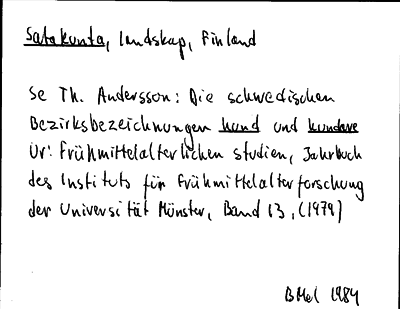 Satakunta, landskap, Finland
Se Th. Andersson: Die schwedischen
Bezirksbezeichnungen hund und hundare
Ur: Frühmittelalterlichen Studien, Jahrbuch
des Instituts für Frühmittelalterforschung
der Universität Münster, Band 13, (1979)
BMel 1984